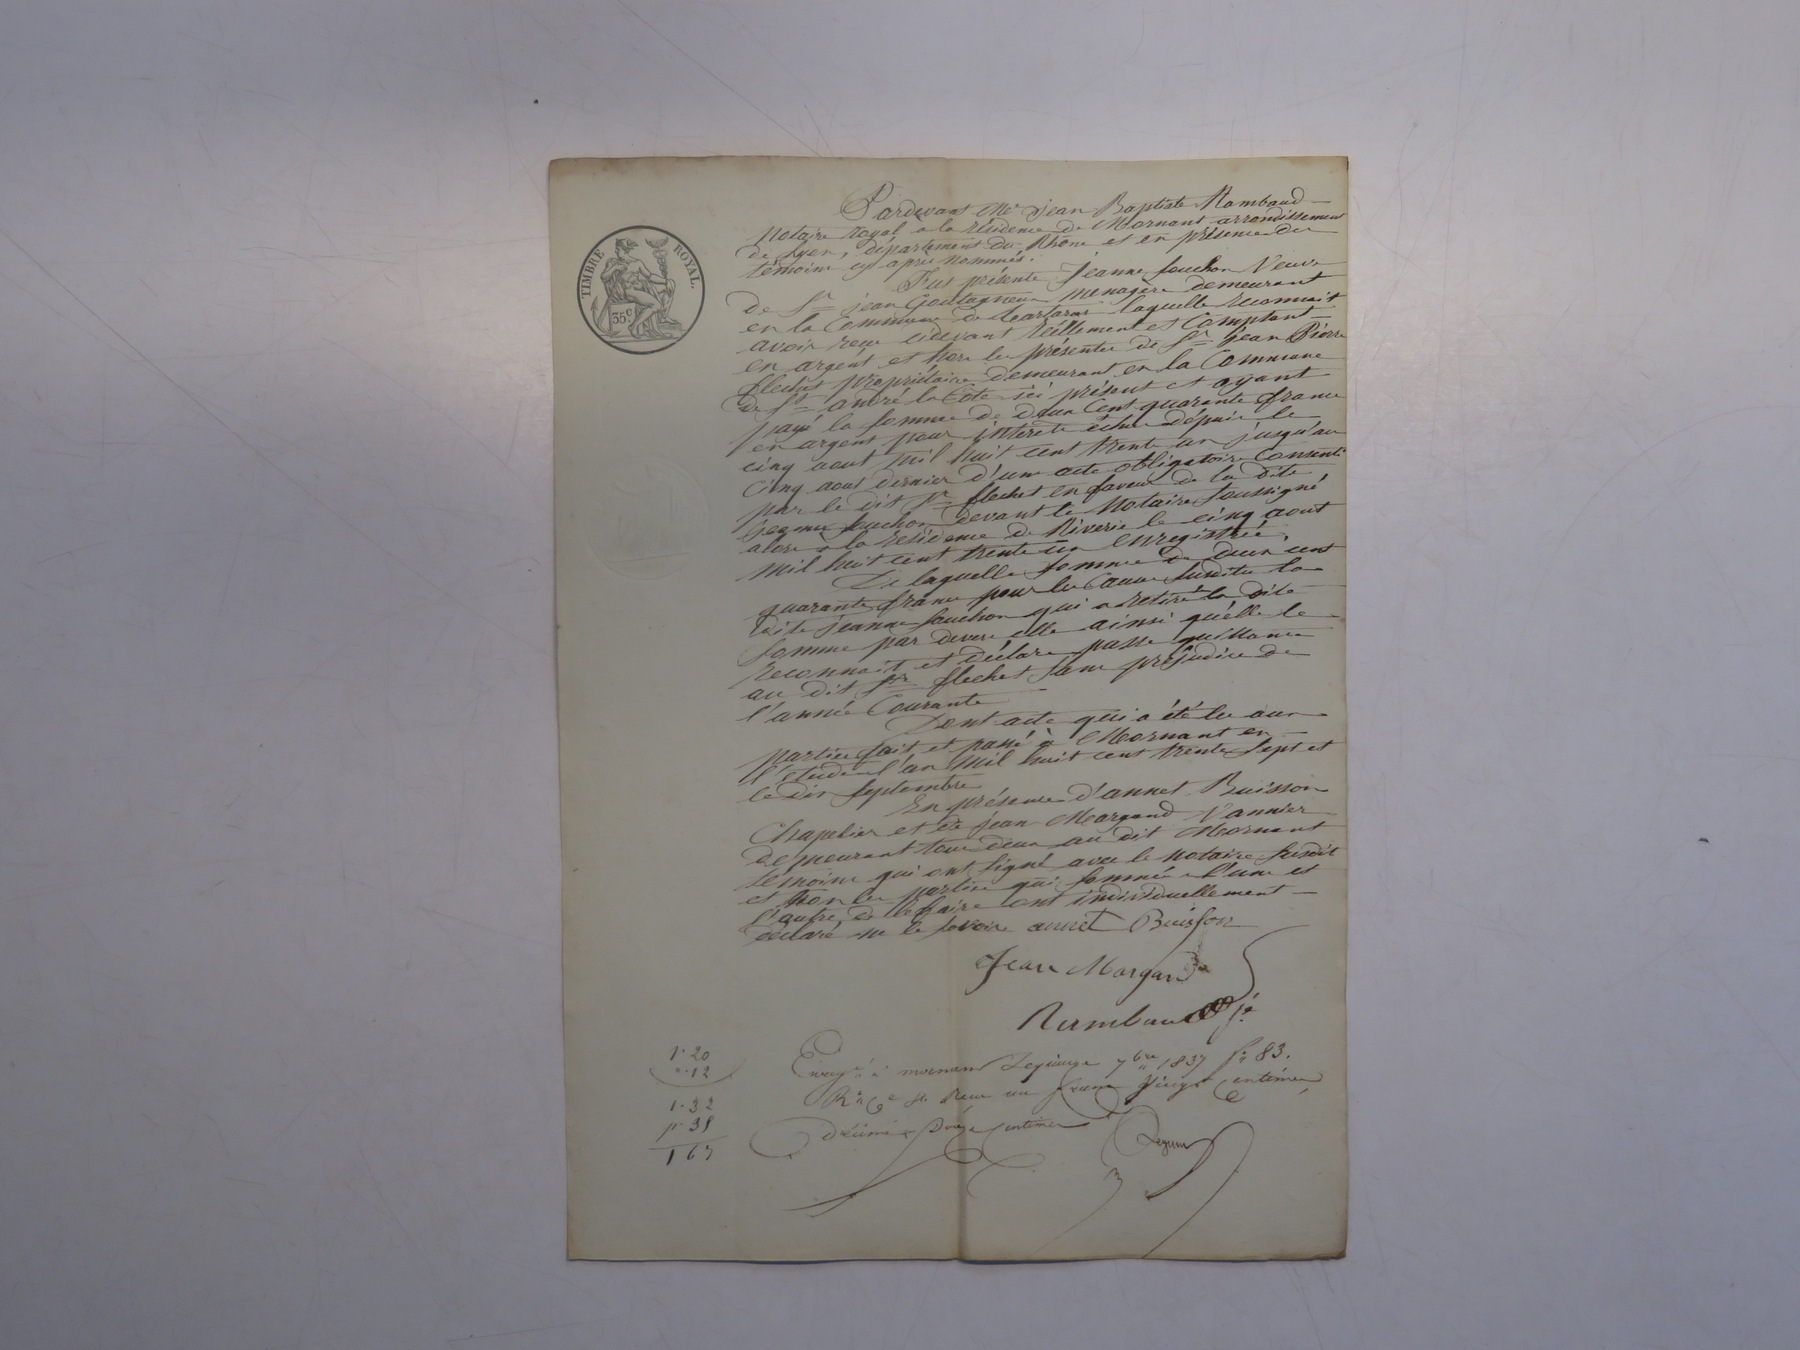 TIMBRE ROYAL.
35c
Pardevant Me jean Baptiste Rambaud
notaire royal a la résidence de Mornant arrondissement
de Lyon, département du Rhône et en présence des
témoins cy après nommés.
Fut présente Jeanne souchon Veuve
de Sr jean Goutagneux menagère demeurant
en la Commune de laquelle reconnait
avoir reçu cidevant réellement et Comptant
en argent et hors les présentes de Sr jean Pierre
flechet propriétaire demeurant en la Commune
de St andré la Côte ici présent et ayant
payé la somme de deux Cent quarante francs
en argent pour intérêts échus dépuis le
cinq aout mil huit cent trente un jusqu'au
cinq aout dernier d'une acte obligatoire Consenti
par le dit Sr flechet en faveur de la dite
jeanne souchon devant le Notaire soussigné
alors a la résidence de Riverie le cinq aout
mil huit cent trente un enregistré.
De laquelle somme de deux cent
quarante francs pour les Causes susdites la
dite jeanne souchon qui a retiré la dite
somme par devers elle ainsi quélle le
reconnait et déclare passe quittance
au dit Sr flechet sans préjudice de
l'année Courante
Dont acte qui a été lu aux
parties fait et passé à Mornant en
l'étude l'an mil huit cent trente sept et
le dix septembre
En présence d'annet Buisson
Chapelier et de jean Margand Vannier
demeurant tous deux au dit Mornant
témoins qui ont signé avec le notaire susdit
et non les parties qui sommées l'une et
l'autre de le faire ont individuellement
déclaré ne le savoir annet Buisson
Jean Margand
Rambaud
1.20
".12
1.32
".35
1 67
Enregé à mornant 7bre 1837 fo 83.
Ro Ce Reçu un franc vingt centimes
décime Douze centimes